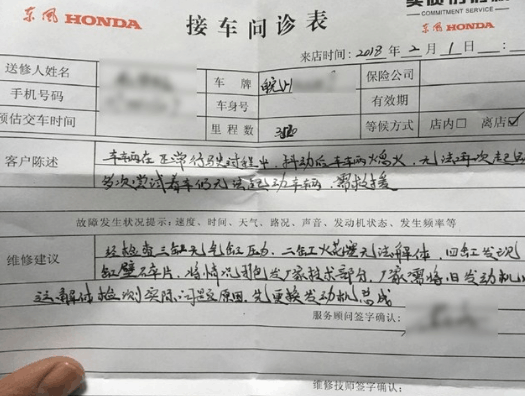 东风 HONDA 接车问诊表
COMMITMENT SERVICE
东风 HONDA
来店时间: 2018 年 2 月 1 日 :
送修人姓名 车牌 皖H 保险公司
手机号码 车身号 有效期
预估交车时间 里程数 等候方式 店内□ 离店☑
客户陈述 车辆在正常行驶过程中,抖动后车辆熄火,无法再次起动
多次尝试着车仍无法起动车辆,需救援
故障发生状况提示:速度、时间、天气、路况、声音、发动机状态、发生频率等
维修建议 经检查三缸无气缸压力,二缸火花塞无法解体,四缸发现
缸壁碎片,将情况 厂家技术部分,厂家需将旧发动机
解体检测实际问题原因,先更换发动机总成
服务顾问签字确认:
维修技师签字确认: